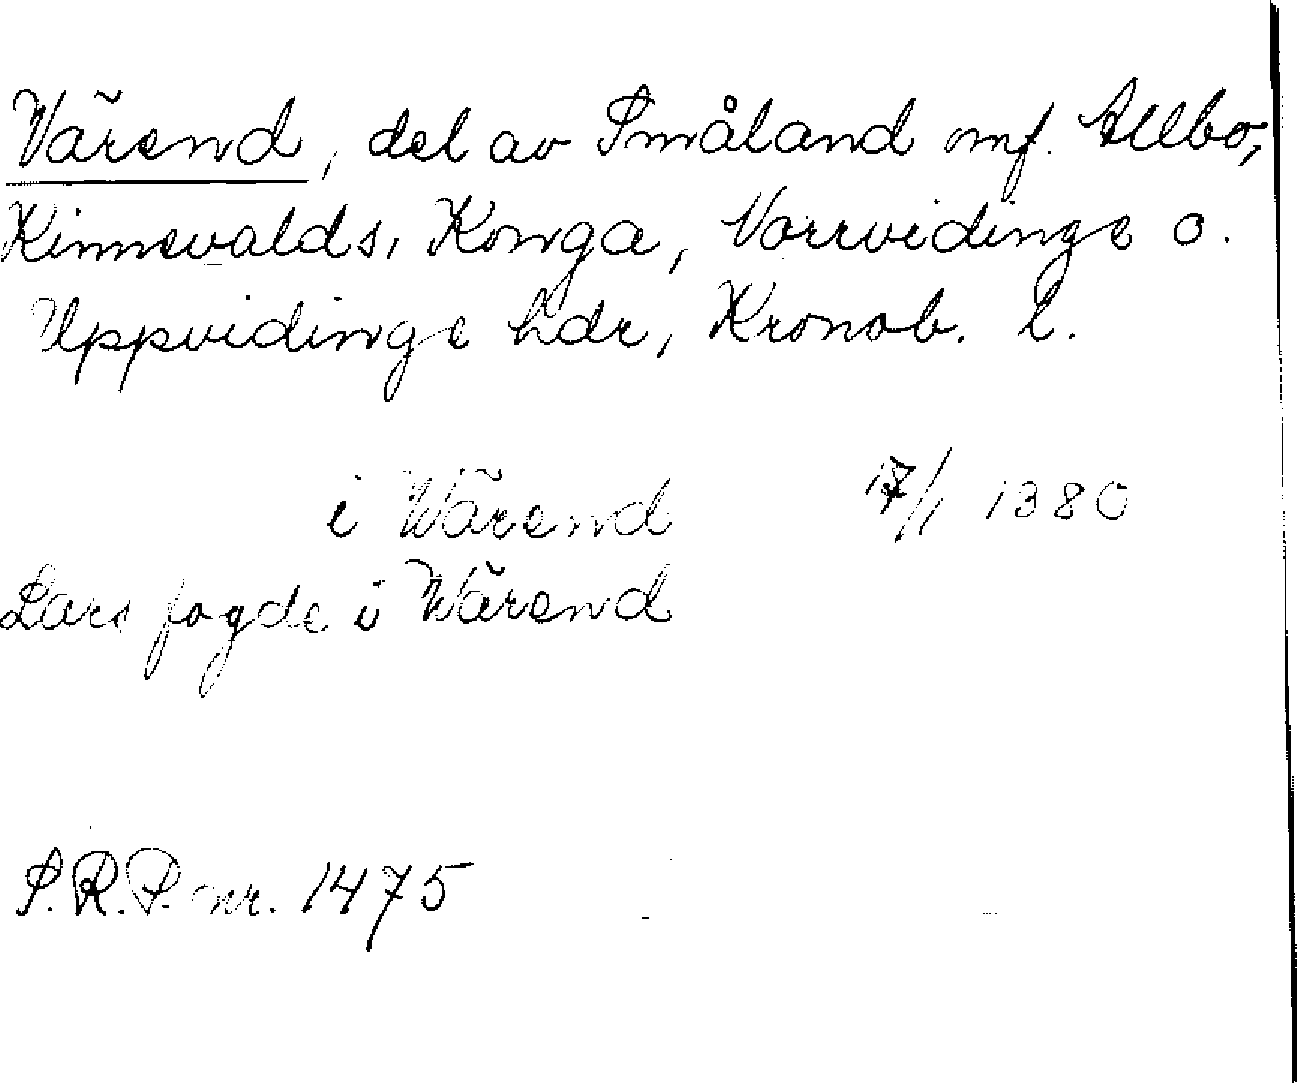 Värend, del av Småland omf. Allbo,
Kinnevalds, Konga, Norrvidinge o.
Uppvidinge hdr, Kronob. l.
i Wärend 17/1 1380
Lars fogde i Wärend
S.R.P. nr. 1475